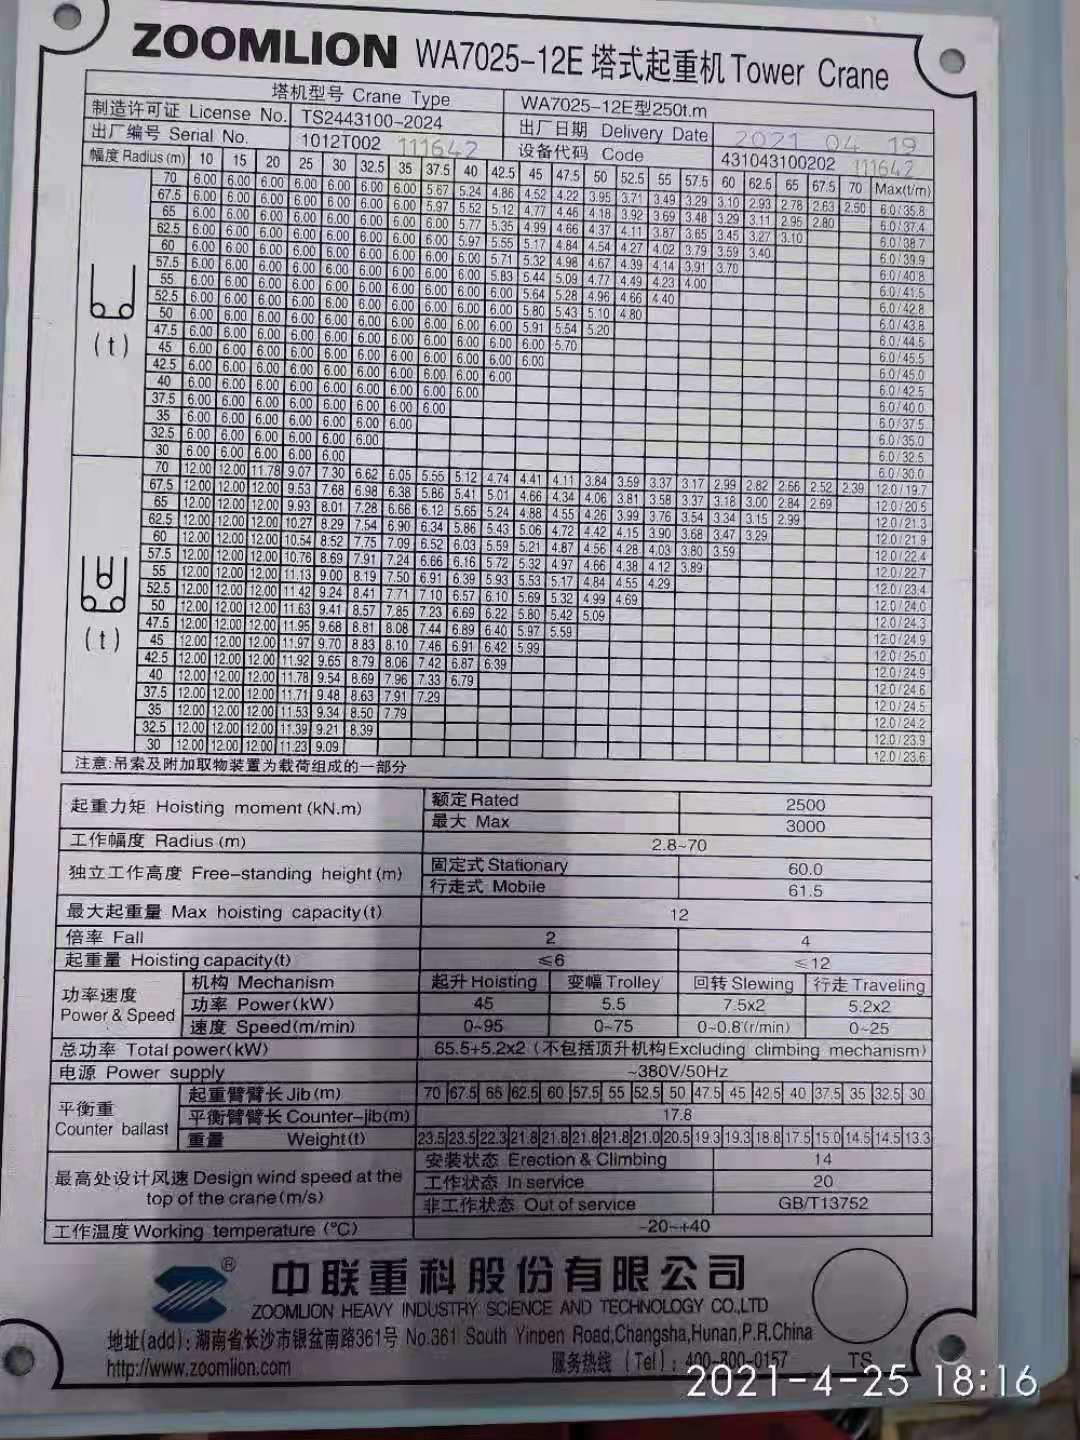 ZOOMLION WA7025-12E 塔式起重机 Tower Crane
塔机型号 Crane Type WA7025-12E型250t.m
制造许可证 License No. TS2443100-2024 出厂日期 Delivery Date 2021 04 19
出厂编号 Serial No. 1012T002 111642 设备代码 Code 431043100202 111642
幅度 Radius (m) 10 15 20 25 30 32.5 35 37.5 40 42.5 45 47.5 50 52.5 55 57.5 60 62.5 65 67.5 70 Max(t/m)
70 6.00 6.00 6.00 6.00 6.00 6.00 6.00 5.67 5.24 4.86 4.52 4.22 3.95 3.71 3.49 3.29 3.10 2.93 2.78 2.63 2.50 6.0/35.8
67.5 6.00 6.00 6.00 6.00 6.00 6.00 6.00 5.97 5.52 5.12 4.77 4.46 4.18 3.92 3.69 3.48 3.29 3.11 2.95 2.80 6.0/37.4
65 6.00 6.00 6.00 6.00 6.00 6.00 6.00 6.00 5.77 5.35 4.99 4.66 4.37 4.11 3.87 3.65 3.45 3.27 3.10 6.0/38.7
62.5 6.00 6.00 6.00 6.00 6.00 6.00 6.00 6.00 5.97 5.55 5.17 4.84 4.54 4.27 4.02 3.79 3.59 3.40 6.0/39.9
60 6.00 6.00 6.00 6.00 6.00 6.00 6.00 6.00 6.00 5.71 5.32 4.98 4.67 4.39 4.14 3.91 3.70 6.0/40.8
57.5 6.00 6.00 6.00 6.00 6.00 6.00 6.00 6.00 6.00 5.83 5.44 5.09 4.77 4.49 4.23 4.00 6.0/41.5
55 6.00 6.00 6.00 6.00 6.00 6.00 6.00 6.00 6.00 6.00 5.64 5.28 4.96 4.66 4.40 6.0/42.8
52.5 6.00 6.00 6.00 6.00 6.00 6.00 6.00 6.00 6.00 6.00 5.80 5.43 5.10 4.80 6.0/43.8
50 6.00 6.00 6.00 6.00 6.00 6.00 6.00 6.00 6.00 6.00 5.91 5.54 5.20 6.0/44.5
(t) 47.5 6.00 6.00 6.00 6.00 6.00 6.00 6.00 6.00 6.00 6.00 6.00 5.70 6.0/45.5
45 6.00 6.00 6.00 6.00 6.00 6.00 6.00 6.00 6.00 6.00 6.00 6.0/45.0
42.5 6.00 6.00 6.00 6.00 6.00 6.00 6.00 6.00 6.00 6.00 6.0/42.5
40 6.00 6.00 6.00 6.00 6.00 6.00 6.00 6.00 6.00 6.0/40.0
37.5 6.00 6.00 6.00 6.00 6.00 6.00 6.00 6.00 6.0/37.5
35 6.00 6.00 6.00 6.00 6.00 6.00 6.00 6.0/35.0
32.5 6.00 6.00 6.00 6.00 6.00 6.00 6.0/32.5
30 6.00 6.00 6.00 6.00 6.00 6.0/30.0
70 12.00 12.00 11.78 9.07 7.30 6.62 6.05 5.55 5.12 4.74 4.41 4.11 3.84 3.59 3.37 3.17 2.99 2.82 2.66 2.52 2.39 12.0/19.7
67.5 12.00 12.00 12.00 9.53 7.68 6.98 6.38 5.86 5.41 5.01 4.66 4.34 4.06 3.81 3.58 3.37 3.18 3.00 2.84 2.69 12.0/20.5
65 12.00 12.00 12.00 9.93 8.01 7.28 6.66 6.12 5.65 5.24 4.88 4.55 4.26 3.99 3.76 3.54 3.34 3.15 2.99 12.0/21.3
62.5 12.00 12.00 12.00 10.27 8.29 7.54 6.90 6.34 5.86 5.43 5.06 4.72 4.42 4.15 3.90 3.68 3.47 3.29 12.0/21.9
60 12.00 12.00 12.00 10.54 8.52 7.75 7.09 6.52 6.03 5.59 5.21 4.87 4.56 4.28 4.03 3.80 3.59 12.0/22.4
57.5 12.00 12.00 12.00 10.76 8.69 7.91 7.24 6.66 6.16 5.72 5.32 4.97 4.66 4.38 4.12 3.89 12.0/22.7
55 12.00 12.00 12.00 11.13 9.00 8.19 7.50 6.91 6.39 5.93 5.53 5.17 4.84 4.55 4.29 12.0/23.4
52.5 12.00 12.00 12.00 11.42 9.24 8.41 7.71 7.10 6.57 6.10 5.69 5.32 4.99 4.69 12.0/24.0
50 12.00 12.00 12.00 11.63 9.41 8.57 7.85 7.23 6.69 6.22 5.80 5.42 5.09 12.0/24.3
(t) 47.5 12.00 12.00 12.00 11.95 9.68 8.81 8.08 7.44 6.89 6.40 5.97 5.59 12.0/24.9
45 12.00 12.00 12.00 11.97 9.70 8.83 8.10 7.46 6.91 6.42 5.99 12.0/25.0
42.5 12.00 12.00 12.00 11.92 9.65 8.79 8.06 7.42 6.87 6.39 12.0/24.9
40 12.00 12.00 12.00 11.78 9.54 8.69 7.96 7.33 6.79 12.0/24.6
37.5 12.00 12.00 12.00 11.71 9.48 8.63 7.91 7.29 12.0/24.5
35 12.00 12.00 12.00 11.53 9.34 8.50 7.79 12.0/24.2
32.5 12.00 12.00 12.00 11.39 9.21 8.39 12.0/23.9
30 12.00 12.00 12.00 11.23 9.09 12.0/23.6
注意:吊索及附加取物装置为载荷组成的一部分
起重力矩 Hoisting moment (kN.m) 额定 Rated 2500
最大 Max 3000
工作幅度 Radius (m) 2.8~70
独立工作高度 Free-standing height (m) 固定式 Stationary 60.0
行走式 Mobile 61.5
最大起重量 Max hoisting capacity(t) 12
倍率 Fall 2 4
起重量 Hoisting capacity(t) ≤6 ≤12
功率速度 Power & Speed 机构 Mechanism 起升 Hoisting 变幅 Trolley 回转 Slewing 行走 Traveling
功率 Power(kW) 45 5.5 7.5x2 5.2x2
速度 Speed(m/min) 0~95 0~75 0~0.8 (r/min) 0~25
总功率 Total power(kW) 65.5+5.2x2 (不包括顶升机构 Excluding climbing mechanism)
电源 Power supply ~380V/50Hz
平衡重 Counter ballast 起重臂臂长 Jib (m) 70 67.5 65 62.5 60 57.5 55 52.5 50 47.5 45 42.5 40 37.5 35 32.5 30
平衡臂臂长 Counter-jib(m) 17.8
重量 Weight(t) 23.5 23.5 22.3 21.8 21.8 21.8 21.8 21.0 20.5 19.3 19.3 18.8 17.5 15.0 14.5 14.5 13.3
最高处设计风速 Design wind speed at the top of the crane(m/s) 安装状态 Erection & Climbing 14
工作状态 In service 20
非工作状态 Out of service GB/T13752
工作温度 Working temperature (℃) -20~+40
® 中联重科股份有限公司
ZOOMLION HEAVY INDUSTRY SCIENCE AND TECHNOLOGY CO.,LTD
地址(add): 湖南省长沙市银盆南路361号 No.361 South Yinpen Road,Changsha,Hunan,P.R.China
http://www.zoomlion.com 服务热线 (Tel): 400-800-0157 TS
2021-4-25 18:16